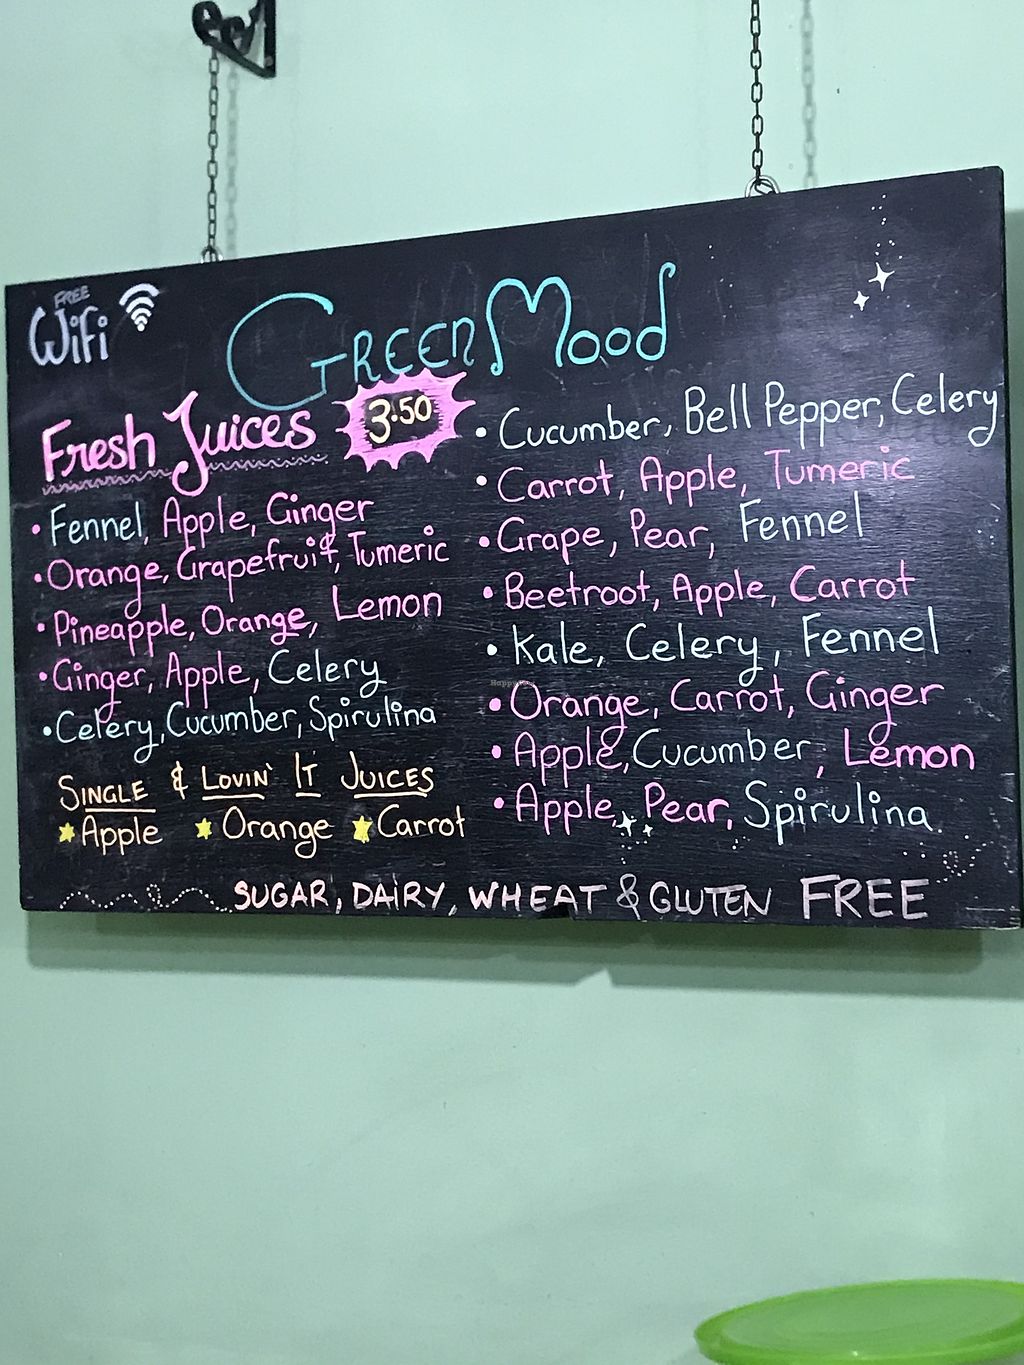 FREE
WiFi
GREEN Mood
Fresh Juices 3.50
• Fennel, Apple, Ginger
• Orange, Grapefruit, Tumeric
• Pineapple, Orange, Lemon
• Ginger, Apple, Celery
• Celery, Cucumber, Spirulina
SINGLE & LOVIN' IT JUICES
Apple Orange Carrot
• Cucumber, Bell Pepper, Celery
• Carrot, Apple, Tumeric
• Grape, Pear, Fennel
• Beetroot, Apple, Carrot
• Kale, Celery, Fennel
• Orange, Carrot, Ginger
• Apple, Cucumber, Lemon
• Apple, Pear, Spirulina.
SUGAR, DAIRY, WHEAT & GLUTEN FREE